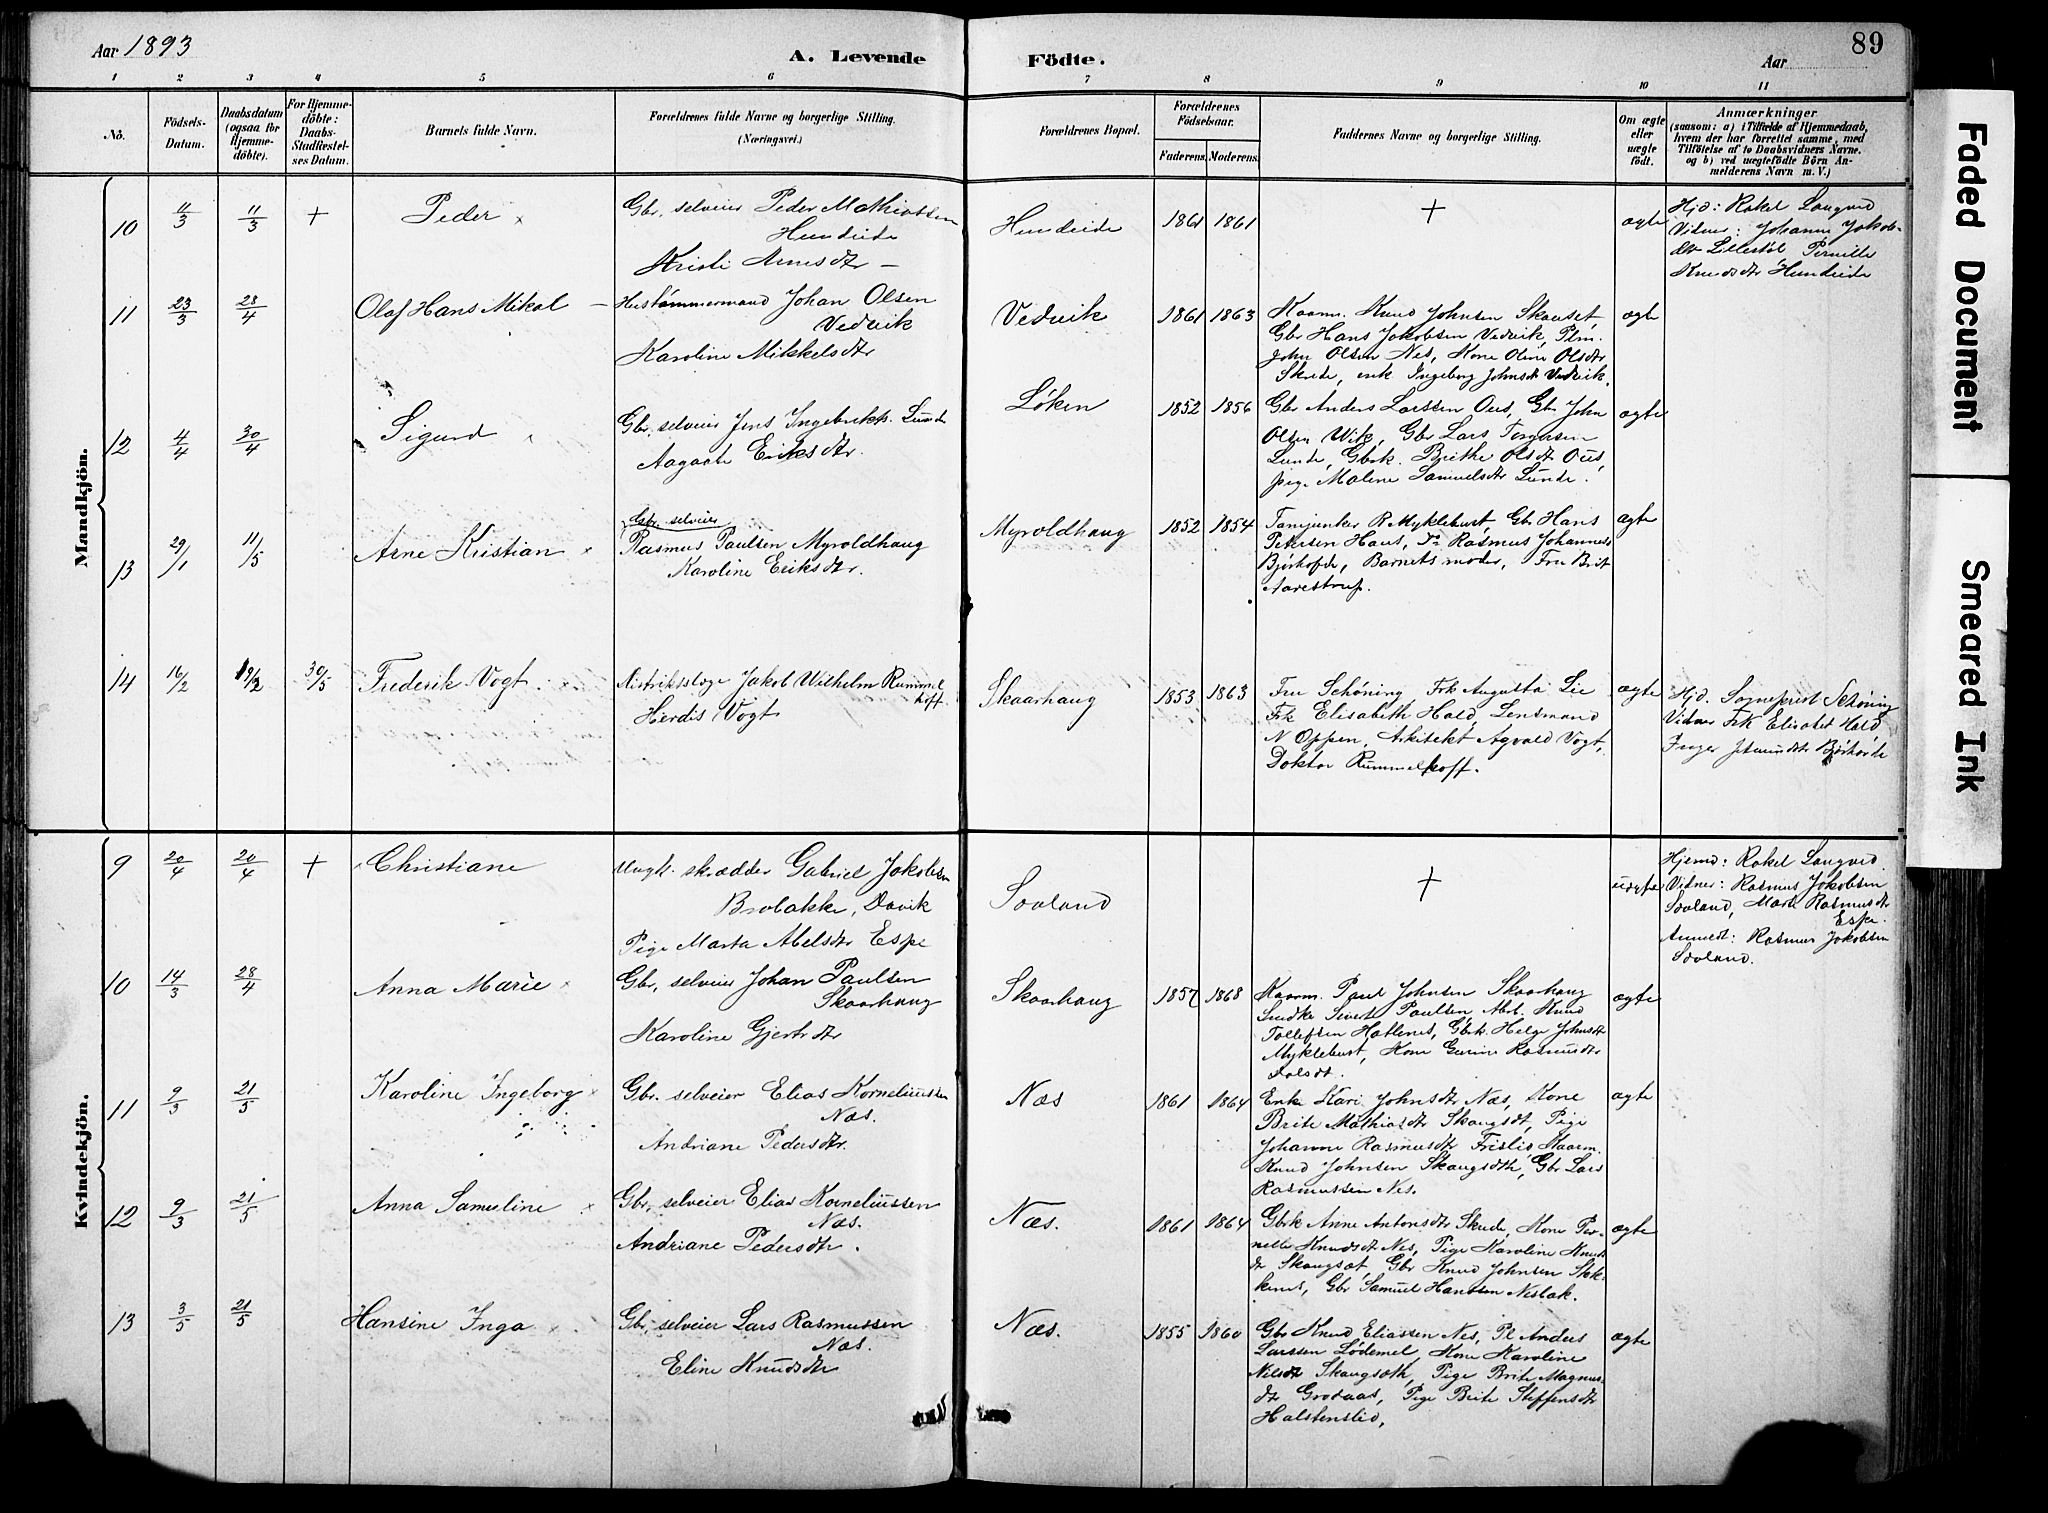 Aar 1893
A. Levende Födte.
Aar
89
1 2 3 4 5 6 7 8 9 10 11
No.
Födsels-Datum.
Daabsdatum (ogsaa for Hjemmedöbte).
For Hjemmedöbte: Daabs-Stadfæstelses Datum.
Barnets fulde Navn.
Forældrenes fulde Navne og borgerlige Stilling.
(Næringsvei.)
Forældrenes Bopæl.
Forældrenes Födselsaar.
Faderens.
Moderens.
Faddernes Navne og borgerlige Stilling.
Om ægte eller uægte födt.
Anmærkninger
(saasom: a) i Tilfælde af Hjemmedaab, hvem der har forrettet samme, med Tilföielse af to Daabsvidners Navne. og b) ved uægtefödte Börn Anmelderens Navn m. V.)
Mandkjön.
10 11/3 11/3 + Peder
Gbr. selveier Peder Mathiassen
Hundeide
Kristi Arnesdtr —
Hundeide 1861 1861 + ægte
Hjd: Rakel Langved
Vidner: Johanne Jakobs-
dtr Lillestøl Pernille
Knudsdtr Hundeide
11 23/3 28/4 Olaf Hans Mikal —
Hustømmermand Johan Olsen
Vedvik
Karoline Mikkelsdtr
Vedvik 1861 1863
Kaarm. Knud Johnsen Skauset,
Gbr Hans Jakobsen Vedvik, Plm.
John Olsen Nes, Kone Oline Olsdtr
Skrede, enk Ingeborg Johnsdt Vedvik.
ægte
12 4/4 30/4 Sigurd
Gbr. selveier Jens Ingebrikts. Lunde
Aagaate Eriksdtr.
Løken 1852 1856
Gbr Anders Larssen Ous, Gbr John
Olsen Wik, Gbr Lars Tomassen
Lunde, Gbrk. Brithe Olsdt Ous,
pige Malene Samuelsdtr Lunde.
ægte
13 29/1 11/5 Arne Kristian x
Gbr. selveier
Rasmus Paulsen Myroldhaug
Karoline Eriksdtr.
Myroldhaug 1852 1854
R Myklebust, Gbr Hans
Petersen Haus, Do Rasmus Johannes
Barnets moder, Fru Brit
Aarestrup.
ægte
14 16/2 19/2 30/5 Frederik Vogt
Distriktslæge Jakob Wilhelm Rummel
hoff
Herdis Vogt
Skaarhaug 1853 1863
Fru Schøning, Frk Augusta Lie
Frk Elisabeth Hald, Lensmand
N Oppen, Arkitekt Agvald Vogt,
Doktor Rummelhoff.
ægte
Hjd. Sogneprest Schøning
Vidner Frk Elisabet Hald
Inger
Kvindekjön.
9 20/4 20/4 + Christiane
Ungk. skrædder Gabriel Jakobsen
Brobakke, Davik
Pige Marta Abelsdtr Espe
Savland + uægte
Hjemd: Rakel Langved
Vidner: Rasmus Jakobsen
Savland, Marte Rasmusdtr
Espe.
Anmeldt: Rasmus Jakobsen
Savland.
10 14/3 28/4 Anna Marie x
Gbr, selveier Johan Paulsen
Skaarhaug
Karoline Gjertsdtr
Skaarhaug 1857 1868
Kaarm. Paul Johnsen Skaarhaug
Sivert Paulsen Knud
Tollefsen Hatlenes, Gbrk. Helge Johnsdt
Myklebust, Kone Gurine Rasmusdtr
ægte
11 9/3 21/5 Karoline Ingeborg x
Gbr. selveier Elias Korneliussen
Næs.
Andriane Pedersdtr.
Næs 1861 1864
Enke Kari Johnsdtr Næs, Kone
Brite Mathiasdtr Skaugsdt, Pige
Johanne Rasmusdtr Frislid Kaarm.
Knud Johnsen Skaugsdth, Gbr Lars
Rasmussen Nes.
ægte
12 9/3 21/5 Anna Samuline x
Gbr. selveier Elias Korneliussen
Næs.
Andriane Pedersdtr.
Næs. 1861 1864
Gbrk Anne Antonsdtr Skrede, Kone Per-
nelle Knudsdt Nes, Pige Karoline Knuds
dt Skaugsæt, Gbr Knud Johnsen Stok-
kenes, Gbr Samuel Hanssen Nesbak.
ægte
13 3/5 21/5 Hansine Inga x
Gbr, selveier Lars Rasmussen
Næs.
Eline Knudsdtr
Næs. 1855 1860
Gbr Knud Eliassen Nes, Pl Anders
Larssen Lødemel, Kone Karoline
Nilsdt Skaugsdth, Pige Brite Magnus-
dtr Grodaas, Pige Brite Steffensdtr
Halstenslid,
ægte
Faded Document
Smeared Ink